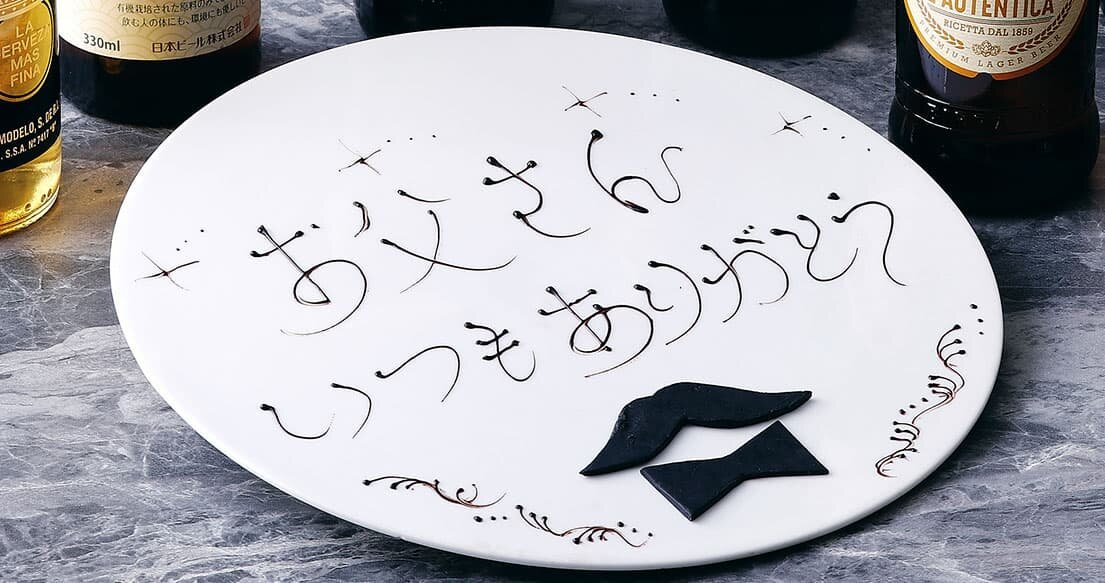 有機栽培された原料のみで
飲む人の体にも、環境にも優しい
330ml 日本ビール株式会社
LA
CERVEZA
MAS
FINA
MODELO, S. DE
S.S.A. No. 7417 "B"
AUTENTICA
RICETTA DAL 1859
PREMIUM LAGER BEER
お父さん
いつもありがとう